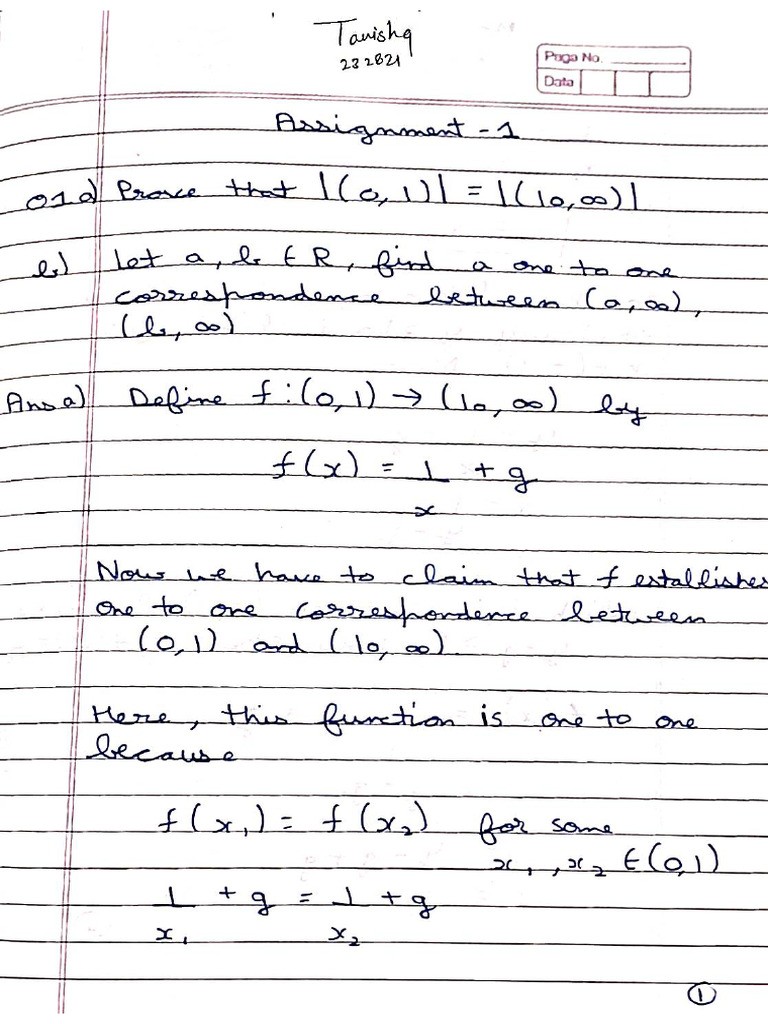 Tanishq
232821
Page No.
Data
Assignment - 1
Q1a) Prove that |(0, 1)| = |(10, ∞)|
b) Let a, b ∈ R, find a one to one
correspondence between (a, ∞),
(b, ∞)
Ans a) Define f : (0, 1) → (10, ∞) by
f(x) = 1/x + 9
Now we have to claim that f establishes
one to one correspondence between
(0, 1) and (10, ∞).
Here, this function is one to one
because
f(x₁) = f(x₂) for some
x₁, x₂ ∈ (0,1)
1/x₁ + 9 = 1/x₂ + 9
1